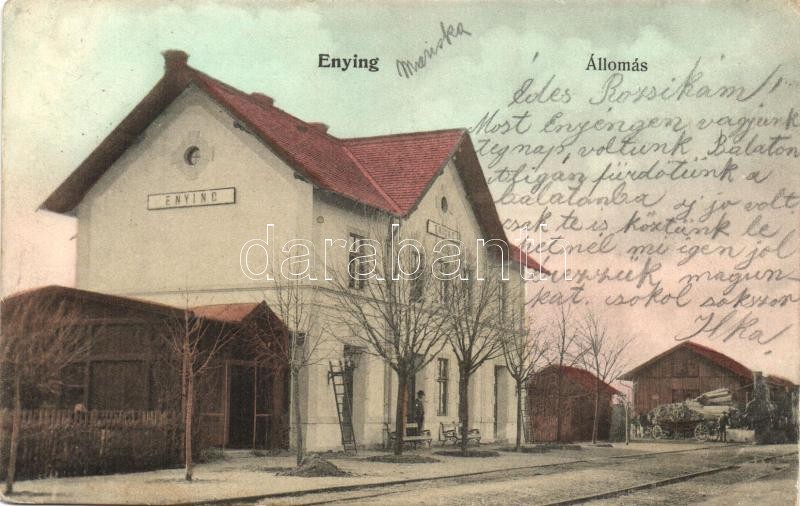 Enying
Mariska
Állomás
Édes Rozsikám!
Most Enyengen vagyunk
tegnap voltunk Balaton
Aligán fürdötünk a
balatonba oj jó volt
csak te is köztünk le
hetnél mi igen jól
érezzük magun
kat. csokol sokszor
Ilka
ENYING
darabanth.com